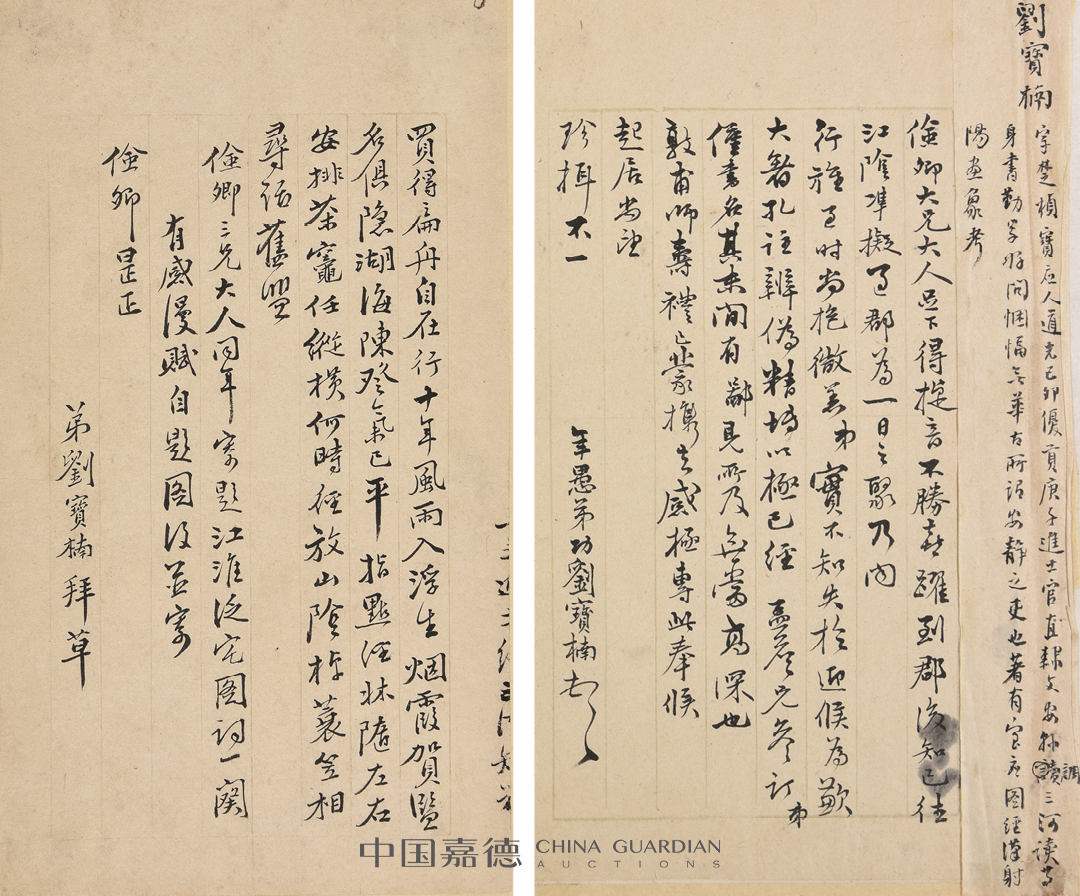 劉寶楠
字楚楨寶應人道光己卯優貢庚子進士官直隸文安調三河讀書
身書勤學好問悃愊無華古所謂安靜之吏也著有寶應圖經漢射
陽畫象考
儉卿大兄大人足下得提音不勝喜躍到郡後知已往
江陰準擬過郡為一日之聚乃聞
行旌過時尚抱微恙弟實不知失於迎候為歉
大著孔注辨偽精博以極已經孟詹兄參訂弟
僅書名其末間有鄙見所及無當高深也
敦甫師壽禮已蒙攜去感極專此奉候
起居尚望
珍攝不一
年愚弟功劉寶楠
買得扁舟自在行十年風雨入浮生烟霞賀監
名俱隱湖海陳登氣已平指點經牀隨左右
安排茶竈任縱橫何時徑放山陰棹蓑笠相
尋話舊盟
儉卿三兄大人同年寄題江淮泛宅圖詞一闋
有感漫賦自題圖後並寄
儉卿是正
弟劉寶楠拜草
中国嘉德 CHINA GUARDIAN
AUCTIONS